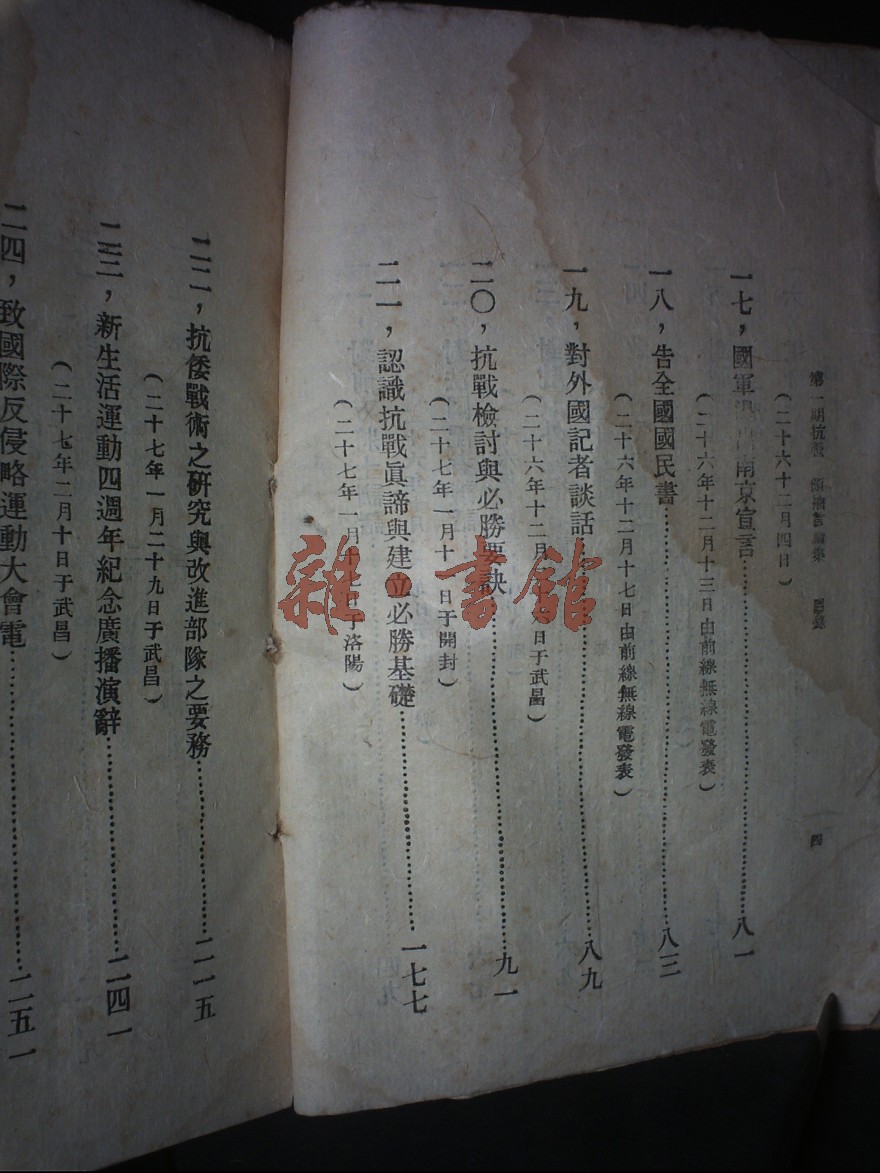 第一期抗戰 領袖言論集 目錄 四
(二十六十二月四日)
一七，國軍退出南京宣言……八一
(二十六年十二月十三日由前線無線電發表)
一八，告全國國民書……八三
(二十六年十二月十七日由前線無線電發表)
一九，對外國記者談話……八九
(二十六年十二月 日于武昌)
二〇，抗戰檢討與必勝要訣……九一
(二十七年一月十 日于開封)
二一，認識抗戰眞諦與建立必勝基礎……一七七
(二十七年一月十 日于洛陽)
二二，抗倭戰術之硏究與改進部隊之要務……二一五
(二十七年一月二十九日于武昌)
二三，新生活運動四週年紀念廣播演辭……二四一
(二十七年二月十日于武昌)
二四，致國際反侵略運動大會電……二五一
雜·書館